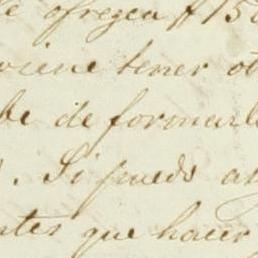 ofrezca $ 150
tener ot
be de formarl
. Si puedo a
ntes que hacer